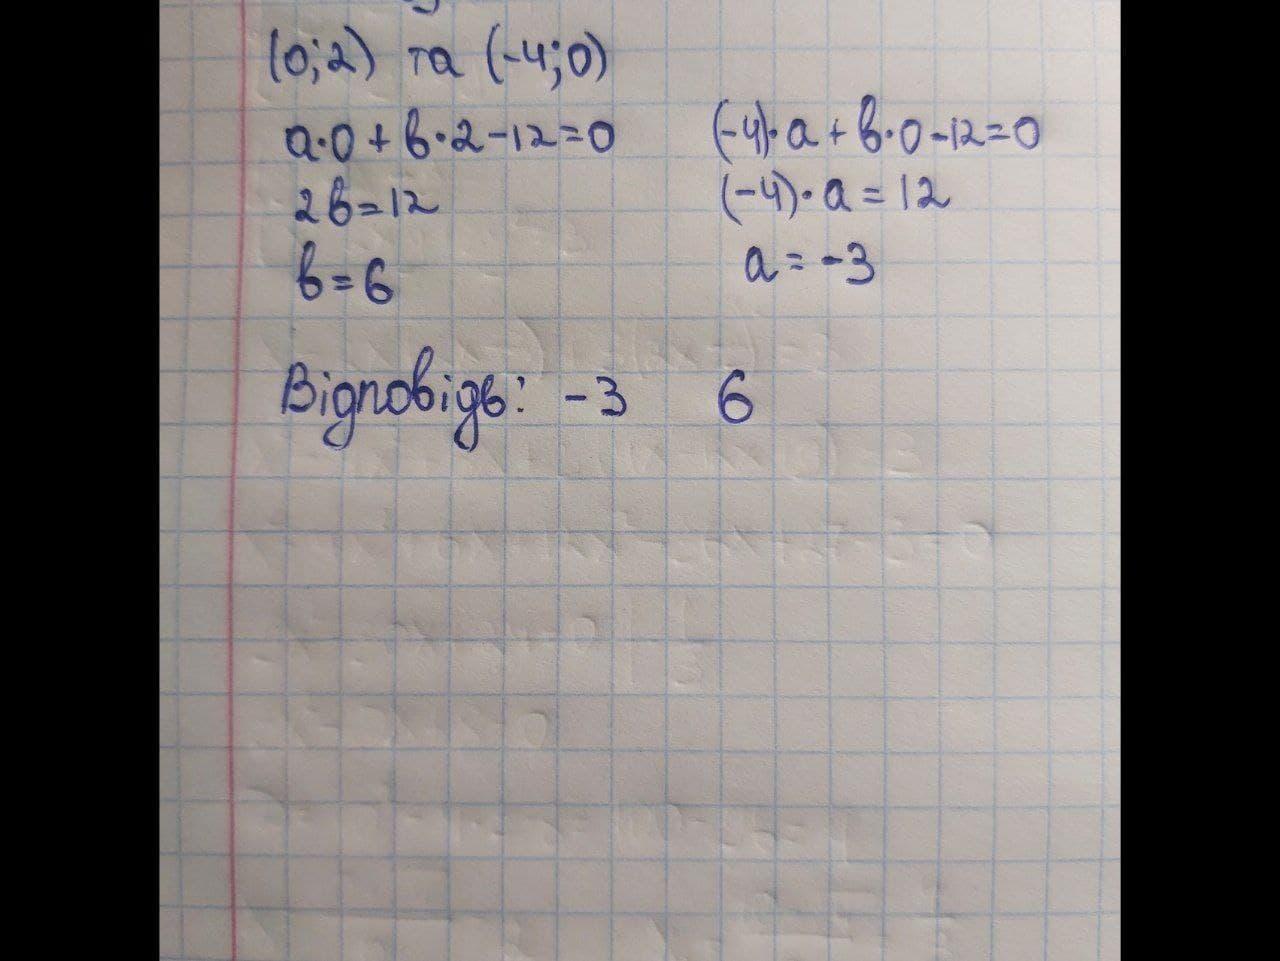 (0;2) та (-4;0)
a·0+b·2-12=0
2b=12
b=6
(-4)·a+b·0-12=0
(-4)·a=12
a=-3
Відповідь: -3 6